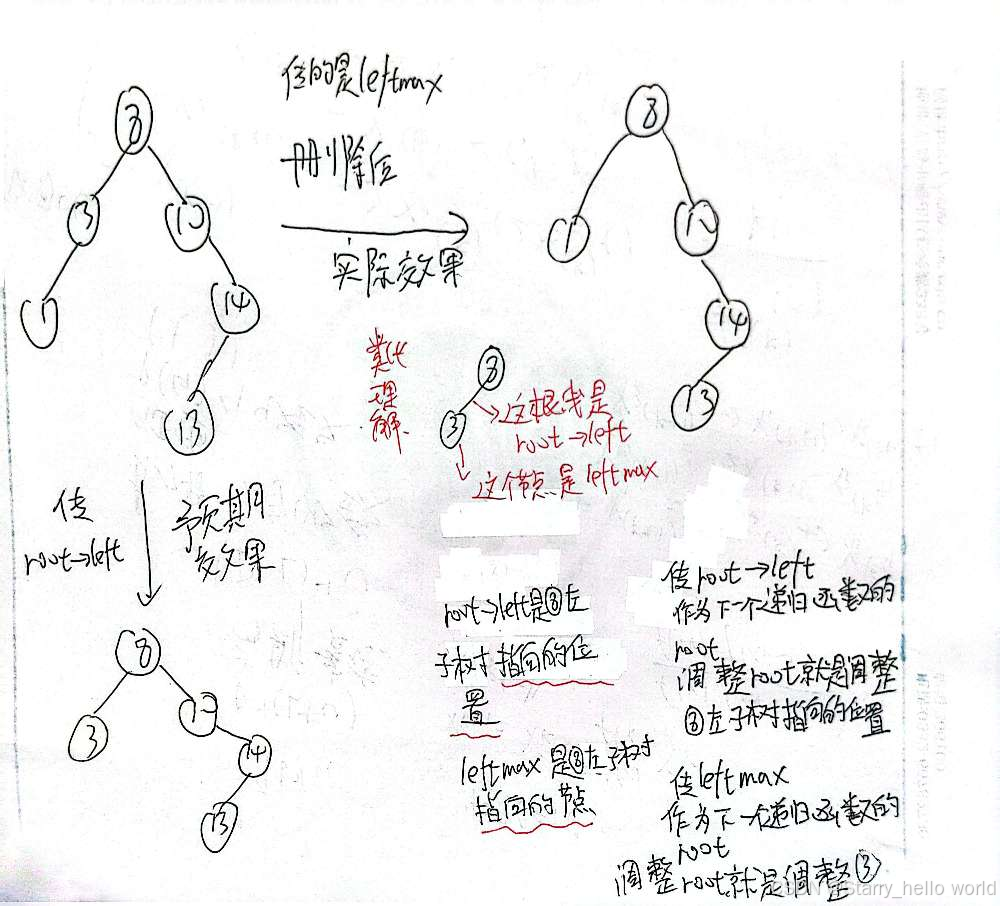 传的是leftmax
删除后
实际效果
8
3
10
1
14
13
8
1
10
14
13
类比
理
解
8
3
这根线是
root→left
这个节点是leftmax
传
root→left
预期
效果
8
3
10
14
13
root→left是⑧左
子树指向的位
置
leftmax是⑧左子树
指向的节点
传root→left
作为下一个递归函数的
root
调整root就是调整
⑧左子树指向的位置
传leftmax
作为下一个递归函数的
root
调整root就是调整③
CSDN @Starry_hello world